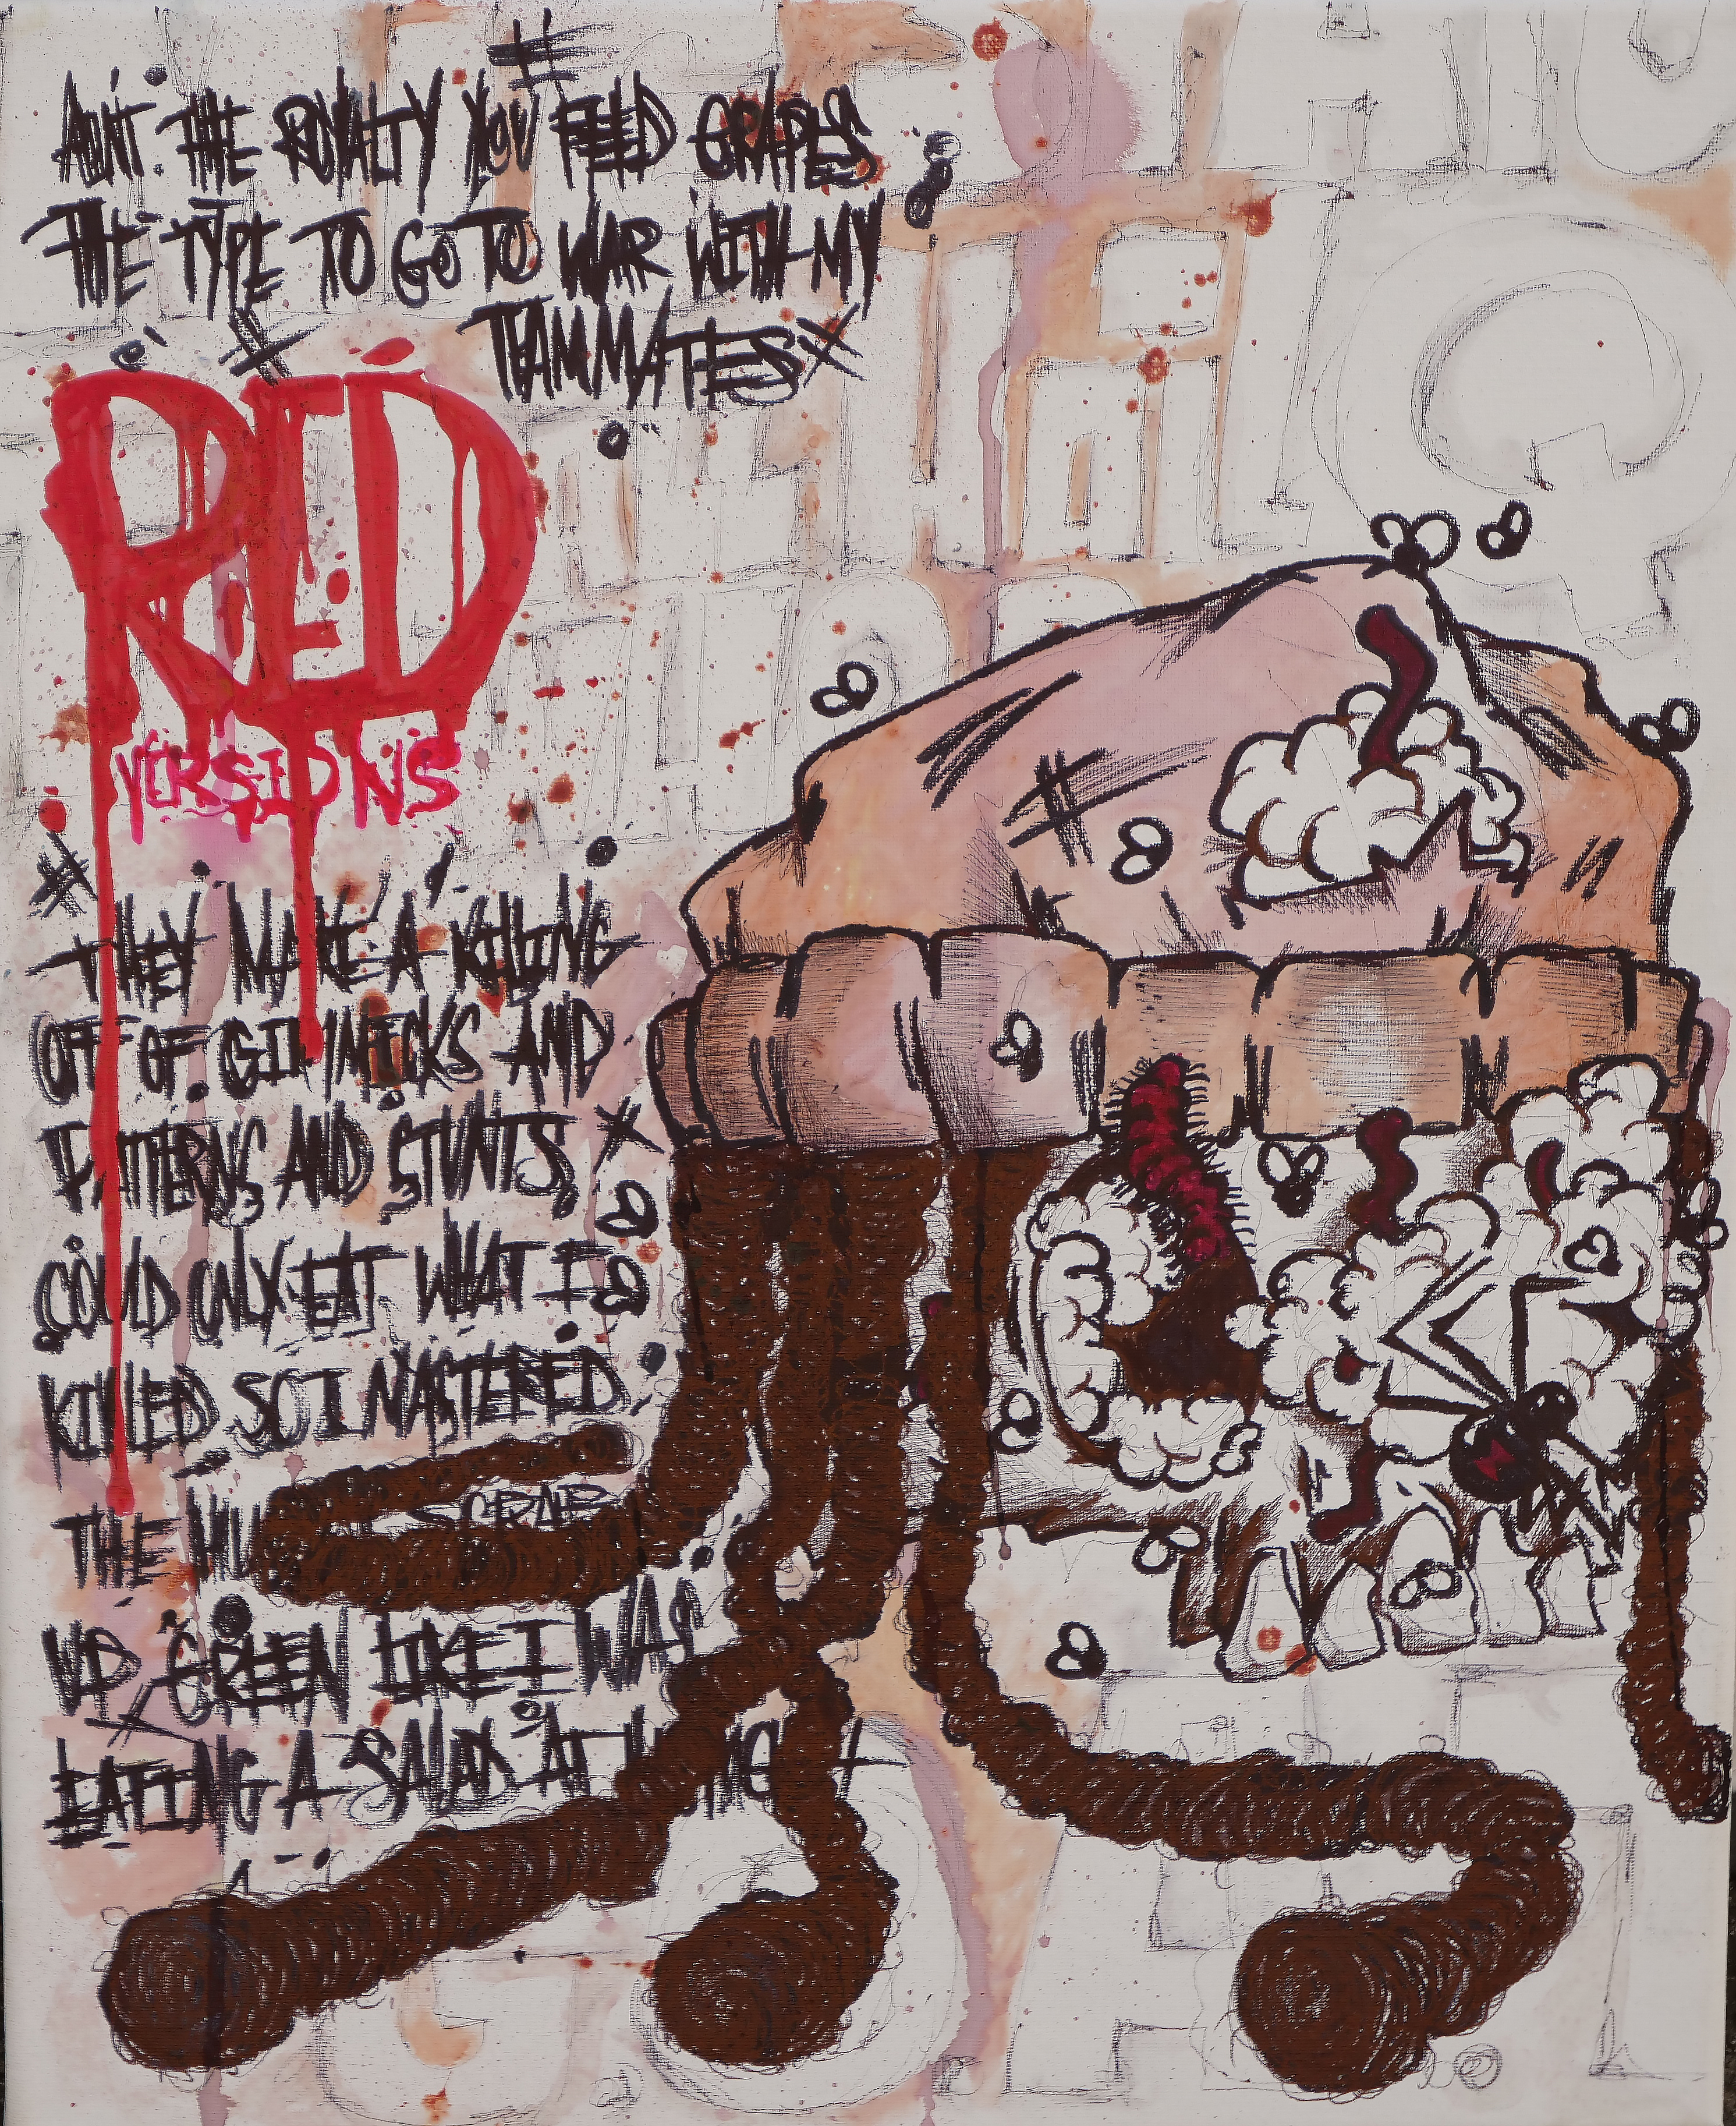 AINT THE ROYALTY YOU FEED GRAPES
THE TYPE TO GO TO WAR WITH MY
TEAMMATES
RED
VERSIONS
THEY MAKE A KILLING
OFF OF GIMMICKS AND
PATTERNS AND STUNTS
COULD ONLY EAT WHAT I
KILLED SO I MASTERED
THE
SCRAP
UP GREEN LIKE I WAS
EATING A SALAD AT